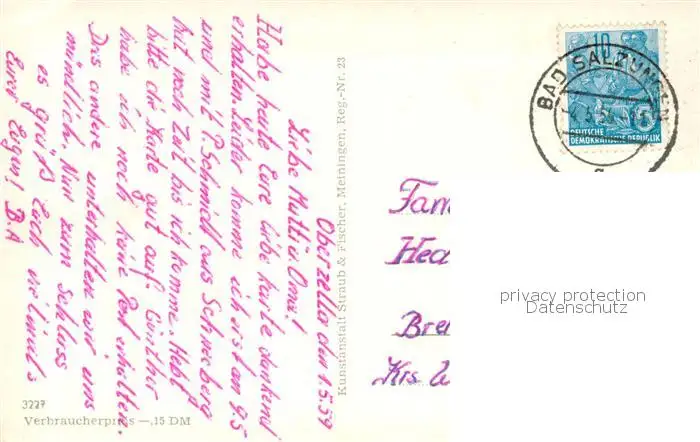 Oberzella den 1.5.59
Liebe Mutti u Oma!
Habe heute Eure liebe Karte dankend
erhalten. Leider komme ich erst am 9.5
und mit P. Schmidt aus Schneeberg
hat noch Zeit bis ich komme. Hebt
bitte die Karte gut auf. Günther
habe ich noch keine Post erhalten.
Das andere unterhalten wir uns
mündlich. Nun zum Schluss
es grüßt Euch vielmals
Euer Eugen! B.A
Kunstanstalt Straub & Fischer, Meiningen, Reg.-Nr. 23
3227
Verbraucherpreis —,15 DM
BAD SALZUNGEN
10
5
DEUTSCHE
DEMOKRATISCHE REPUBLIK
Fam
Hea
Bre
Krs
privacy protection
Datenschutz